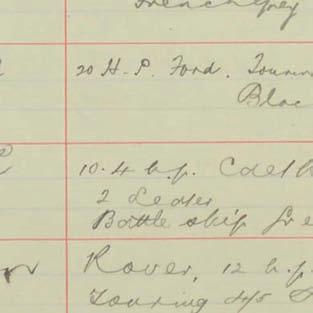 French Grey
20 H.P. Ford. Tourin
Blac
10.4 h.p. Calth
2 Seater
Battle ship Gre
Rover, 12 h.p.
Touring 4/5 S